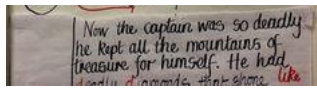 Now the captain was so deadly
he kept all the mountains of
treasure for himself. He had
deadly diamonds that shone like